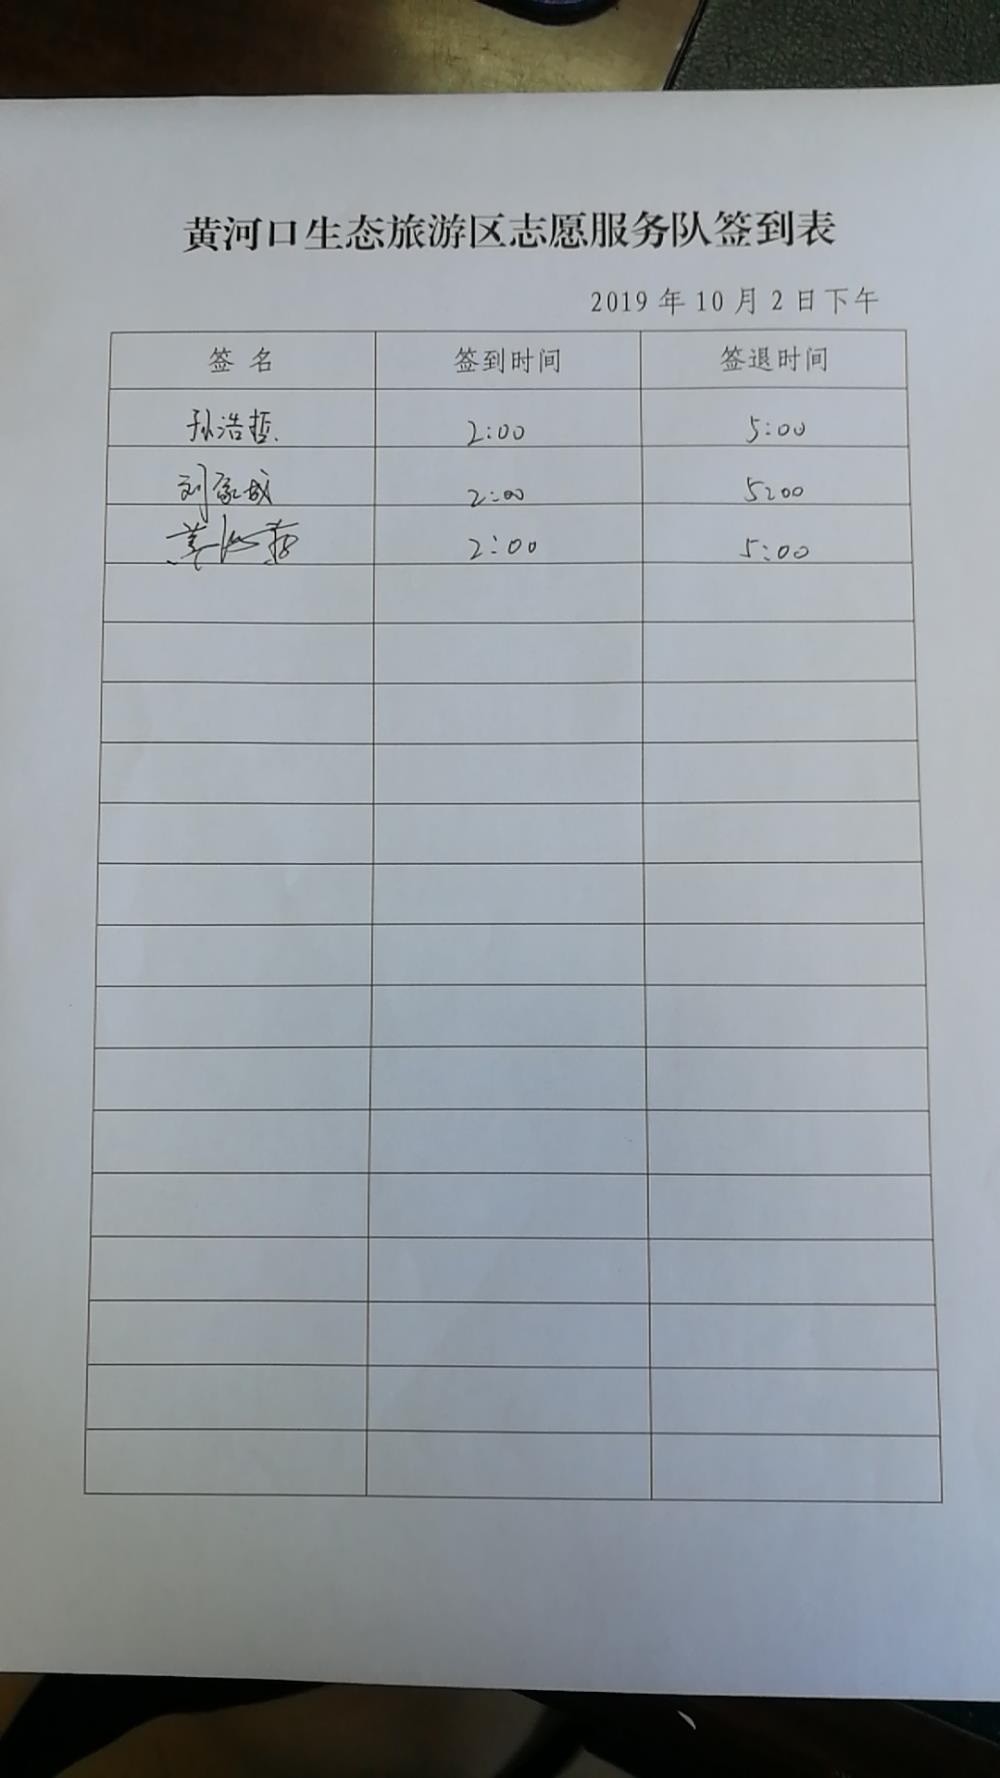 黄河口生态旅游区志愿服务队签到表
2019年10月2日下午
签名 签到时间 签退时间
孙浩哲 2:00 5:00
刘家成 2:00 5:00
2:00 5:00